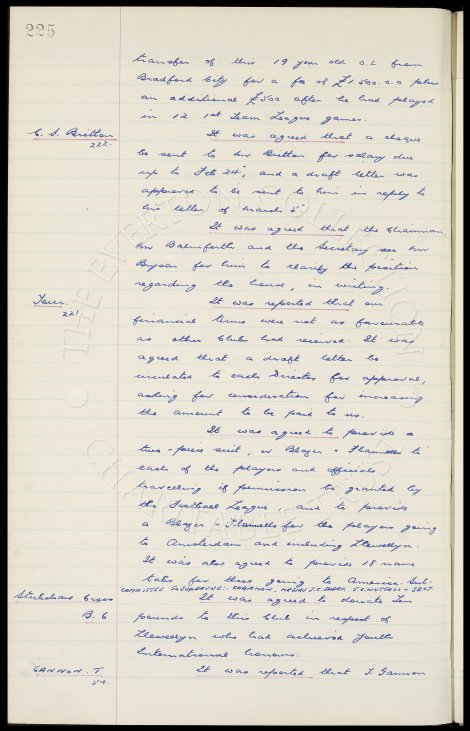 225
transfer of this 19 year old O.L from
Bradford City for a fee of £1.500.0.0 plus
an additional £500 after he had played
in 12 1st Team League games.
C. S. Britton
222.
It was agreed that a cheque
be sent to Mr Britton for salary due
up to Feb 24th, and a draft letter was
approved to be sent to him in reply to
his letter of March 5th
It was agreed that the Chairman
Mr Balmforth and the Secretary see Mr
for him to clarify the position
regarding the house, in writing.
Tour.
221
It was reported that our
financial terms were not as favourable
as other Clubs had received. It was
agreed that a draft letter be
circulated to each Director for approval,
asking for consideration for increasing
the amount to be paid to us.
It was agreed to provide a
two-piece suit, or Blazer & Flannells to
each of the players and officials
travelling if permission be granted by
the Football League, and to provide
a Blazer & Flannells for the players going
to Amsterdam and including Llewellyn.
It was also agreed to provide 18 name
for those going to America. Sub-
COMMITTEE TO SUPERVISE:- CHAIRMAN, MESSRS J.C. SHARP, T.C. NUTTALL & SECY.
Cross
B. C
It was agreed to donate Ten
pounds to this Club in respect of
Llewellyn who had achieved Youth
International honours.
GANNON. T
54
It was reported that T. Gannon
THE EVERTON COLLECTION
CHARITABLE TRUST